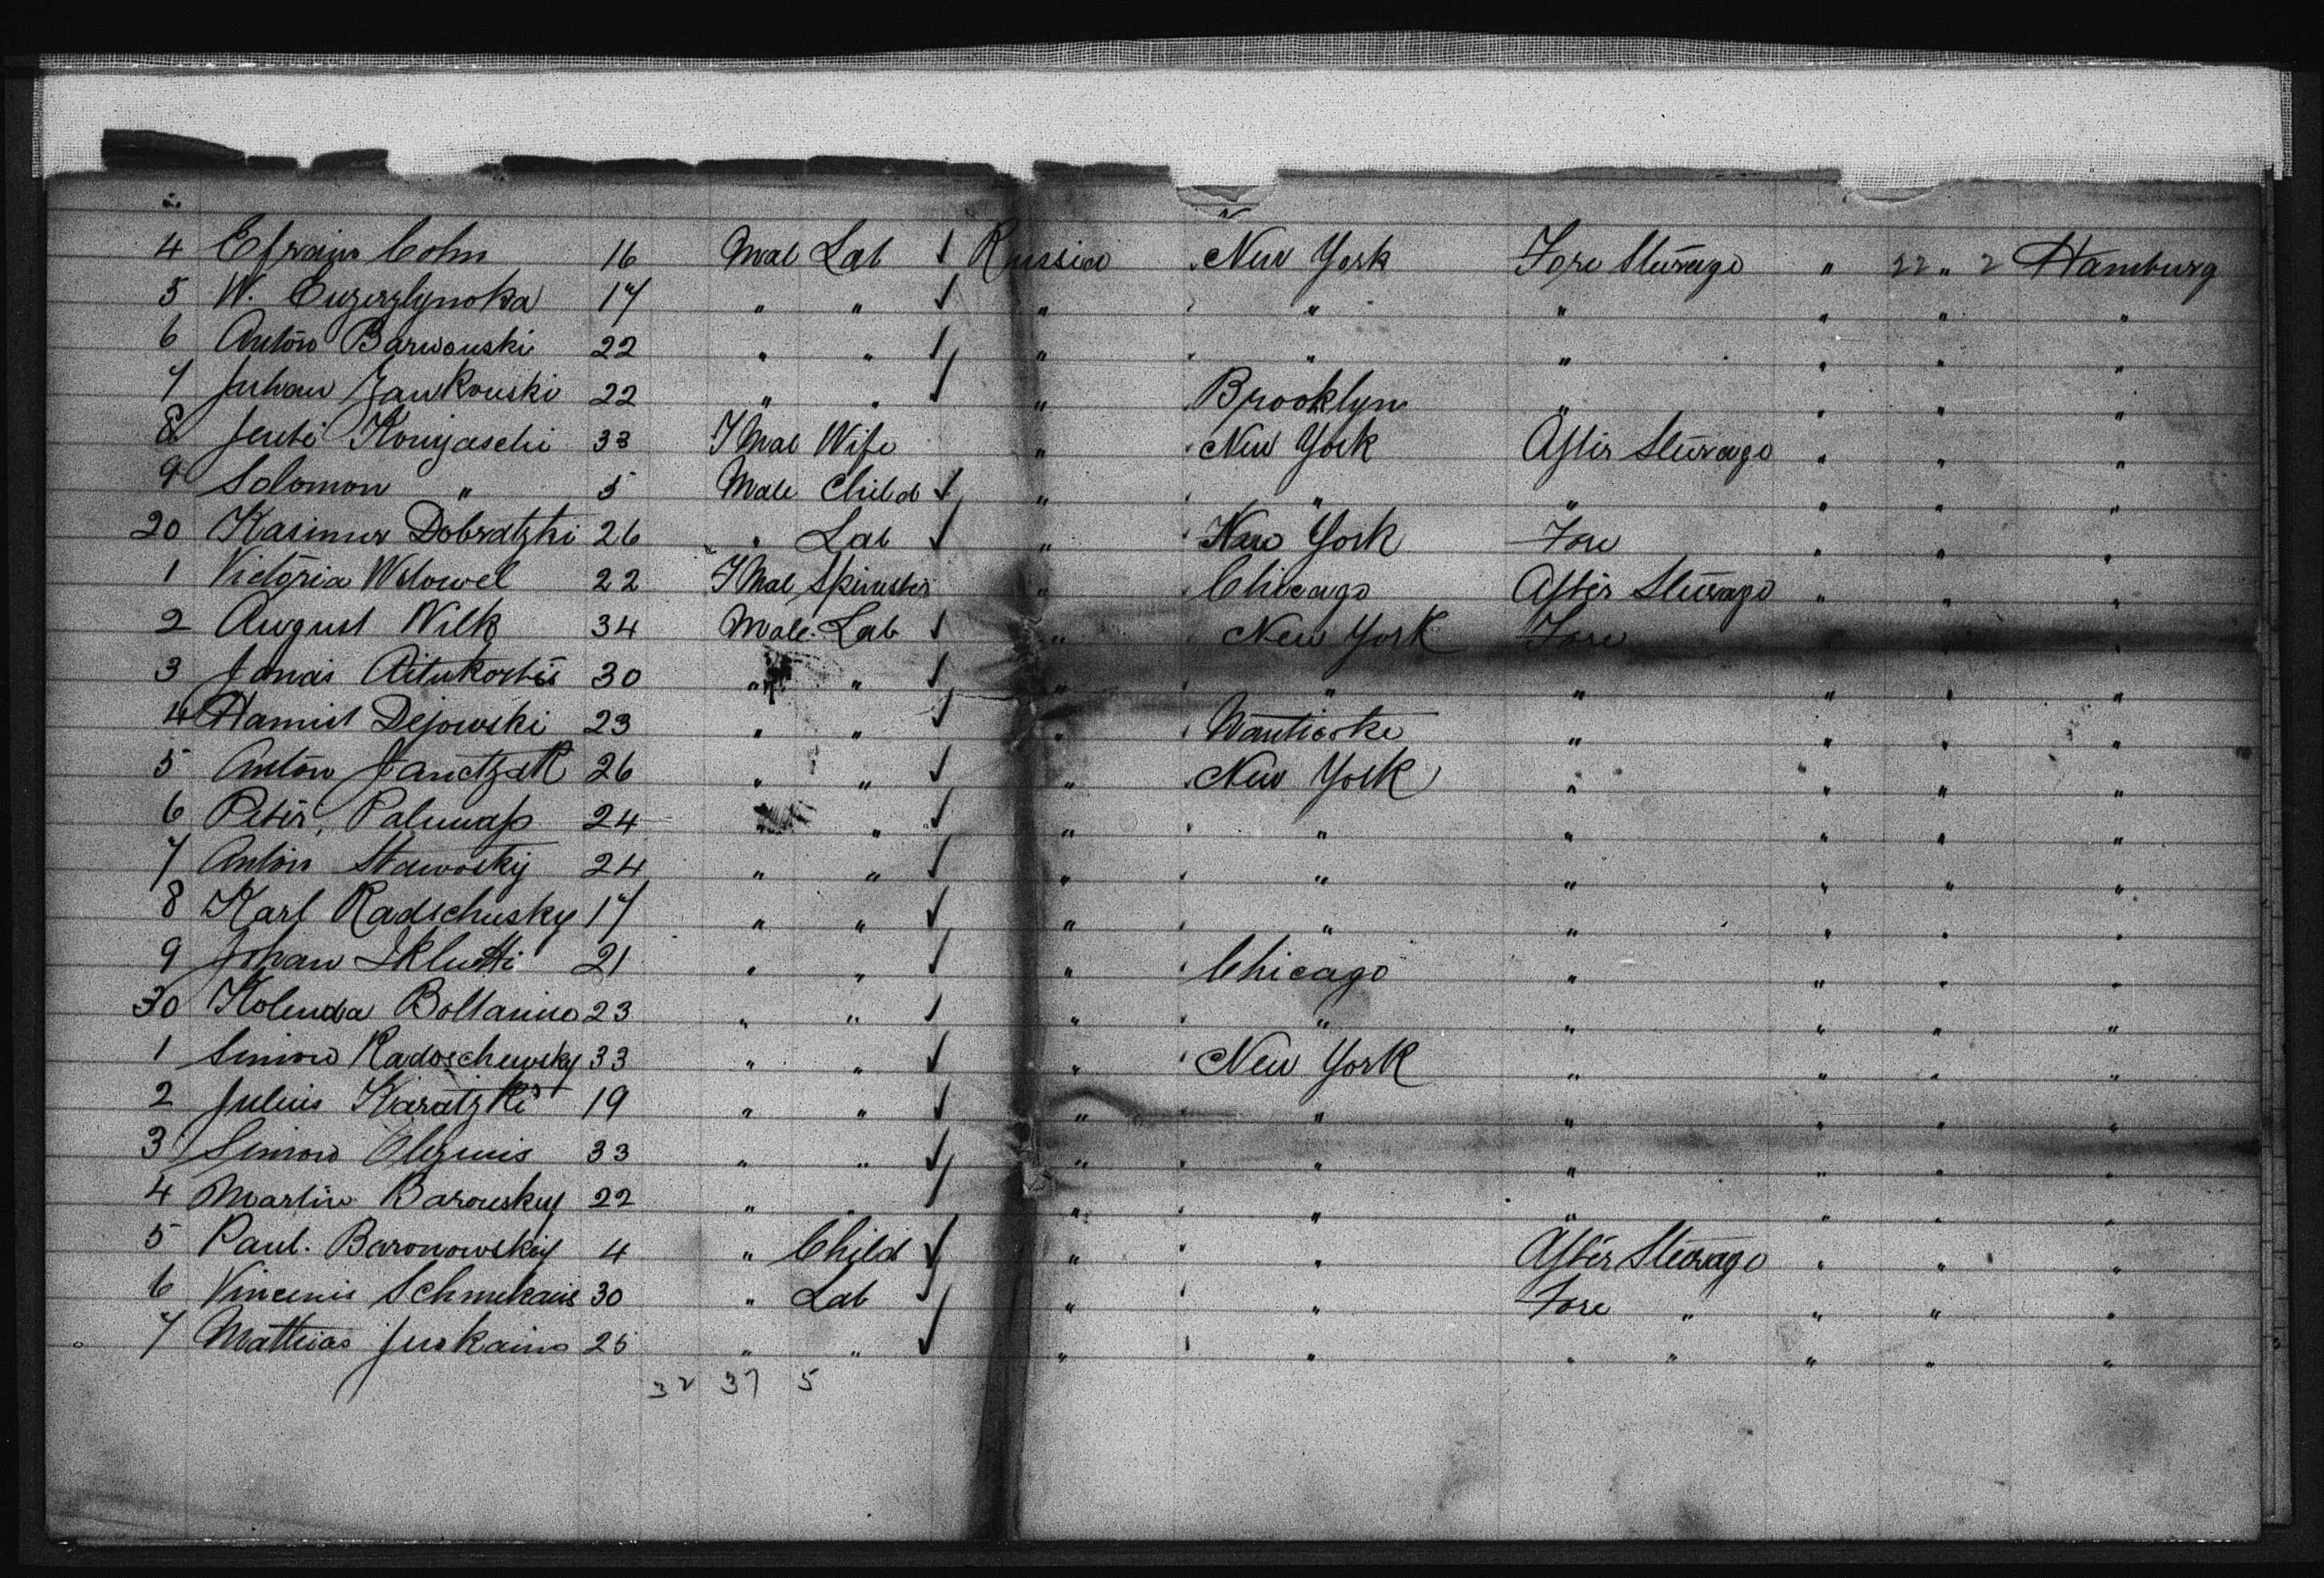 4 Efraim Cohn 16 Mal Lab ✓ Russia New York Fore Steerage " 22 " 2 Hamburg
5 W. 17 " " ✓ " " " " " "
6 Anton Barwouski 22 " " ✓ " " " " " "
7 Juhan Jankouski 22 " " ✓ " Brooklyn " " " "
8 Jenti 33 F Mal Wife " New York After Steerage " " "
9 Solomon " 5 Male Child ✓ " " " " " "
20 Kasimer Dobratzki 26 " Lab ✓ " New York Fore " " "
1 Victoria 22 F Mal Spinster " Chicago After Steerage " " "
2 August Wilk 34 Male Lab ✓ " New York Fore " " "
3 Jonas 30 " " ✓ " " " " " "
4 Dejowski 23 " " ✓ " Nanticoke " " " "
5 Anton Janctzak 26 " " ✓ " New York " " " "
6 Peter, 24 " " ✓ " " " " " "
7 Anton Stawosky 24 " " ✓ " " " " " "
8 Karl Radschusky 17 " " ✓ " " " " " "
9 Johan 21 " " ✓ " Chicago " " " "
30 Kolenda 23 " " ✓ " " " " " "
1 Simon Radoschewsky 33 " " ✓ " New York " " " "
2 Julius Karatzki 19 " " ✓ " " " " " "
3 Simon 33 " " ✓ " " " " " "
4 Martin Barousky 22 " " ✓ " " " " " "
5 Paul. Baronowsky 4 " Child ✓ " " After Steerage " " "
6 Vincenis 30 " Lab ✓ " " Fore " " " "
7 Mathias 25 " " ✓ " " " " " " "
32 37 5